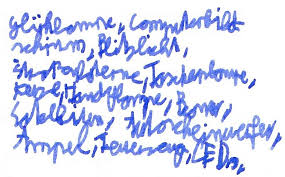 Glühlampe, Computerbild
schirm, Blitzlicht,
Straßenlaterne, Taschenlampe,
Kerze, Handylampe,
Autoscheinwerfer,
Ampel, Feuerzeug, LEDs,